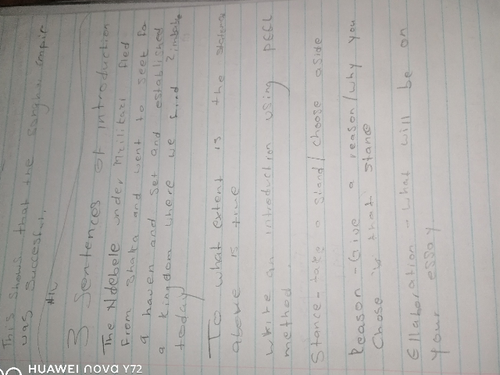 This shows that the songhai empire
was successful.
3 Sentences of introduction
The Ndebele under Mzilikazi fled
from Shaka and went to seek for
a haven and set and established
a kingdom where we find Zimbabwe
today
To what extent is the statement
above is true
Write an introduction using PEEL
method
Stance - take a stand / choose aside
Reason - Give a reason / why you
Chose that stance
Ellaboration - what will be on
your essay
HUAWEI nova Y72